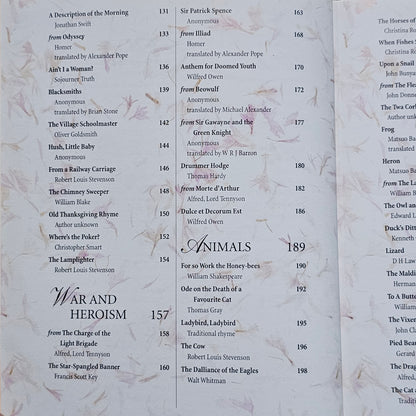 A Description of the Morning 131
Jonathan Swift
from Odyssey 133
Homer
translated by Alexander Pope
Ain't I a Woman? 134
Sojourner Truth
Blacksmiths 139
Anonymous
translated by Brian Stone
The Village Schoolmaster 141
Oliver Goldsmith
Hush, Little Baby 144
Anonymous
From a Railway Carriage 146
Robert Louis Stevenson
The Chimney Sweeper 148
William Blake
Old Thanksgiving Rhyme 150
Author unknown
Where's the Poker? 151
Christopher Smart
The Lamplighter 154
Robert Louis Stevenson
WAR AND
HEROISM 157
from The Charge of the 158
Light Brigade
Alfred, Lord Tennyson
The Star-Spangled Banner 160
Francis Scott Key
Sir Patrick Spence 163
Anonymous
from Illiad 168
Homer
translated by Alexander Pope
Anthem for Doomed Youth 170
Wilfred Owen
from Beowulf 172
Anonymous
translated by Michael Alexander
from Sir Gawayne and the 177
Green Knight
Anonymous
translated by W R J Barron
Drummer Hodge 180
Thomas Hardy
from Morte d'Arthur 182
Alfred, Lord Tennyson
Dulce et Decorum Est 186
Wilfred Owen
ANIMALS 189
For so Work the Honey-bees 190
William Shakespeare
Ode on the Death of a 192
Favourite Cat
Thomas Gray
Ladybird, Ladybird 195
Traditional rhyme
The Cow 196
Robert Louis Stevenson
The Dalliance of the Eagles 198
Walt Whitman
The Horses of
Christina Ro
When Fishes
Christina Ro
Upon a Snail
John Bunya
from The Fle
John Donne
The Twa Cor
Author unkn
Frog
Matsuo Ba
Heron
Matsuo Ba
from The La
William B
The Owl an
Edward L
Duck's Ditt
Kenneth
Lizard
D H Law
The Maldi
Herman
To A Butt
William
The Vixen
John Cla
Pied Bear
Gerard
The Cat a
Author